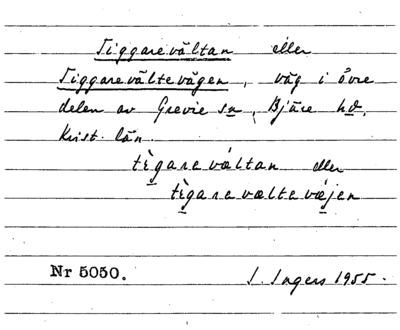 Tiggarevältan eller
Tiggarevältevägen, väg i övre
delen av Grevie sn, Bjäre hd,
Krist. län.
tìgareváltan eller
tìgarevæltevæ̀jen
Nr 5050.
I. Ingers 1955.